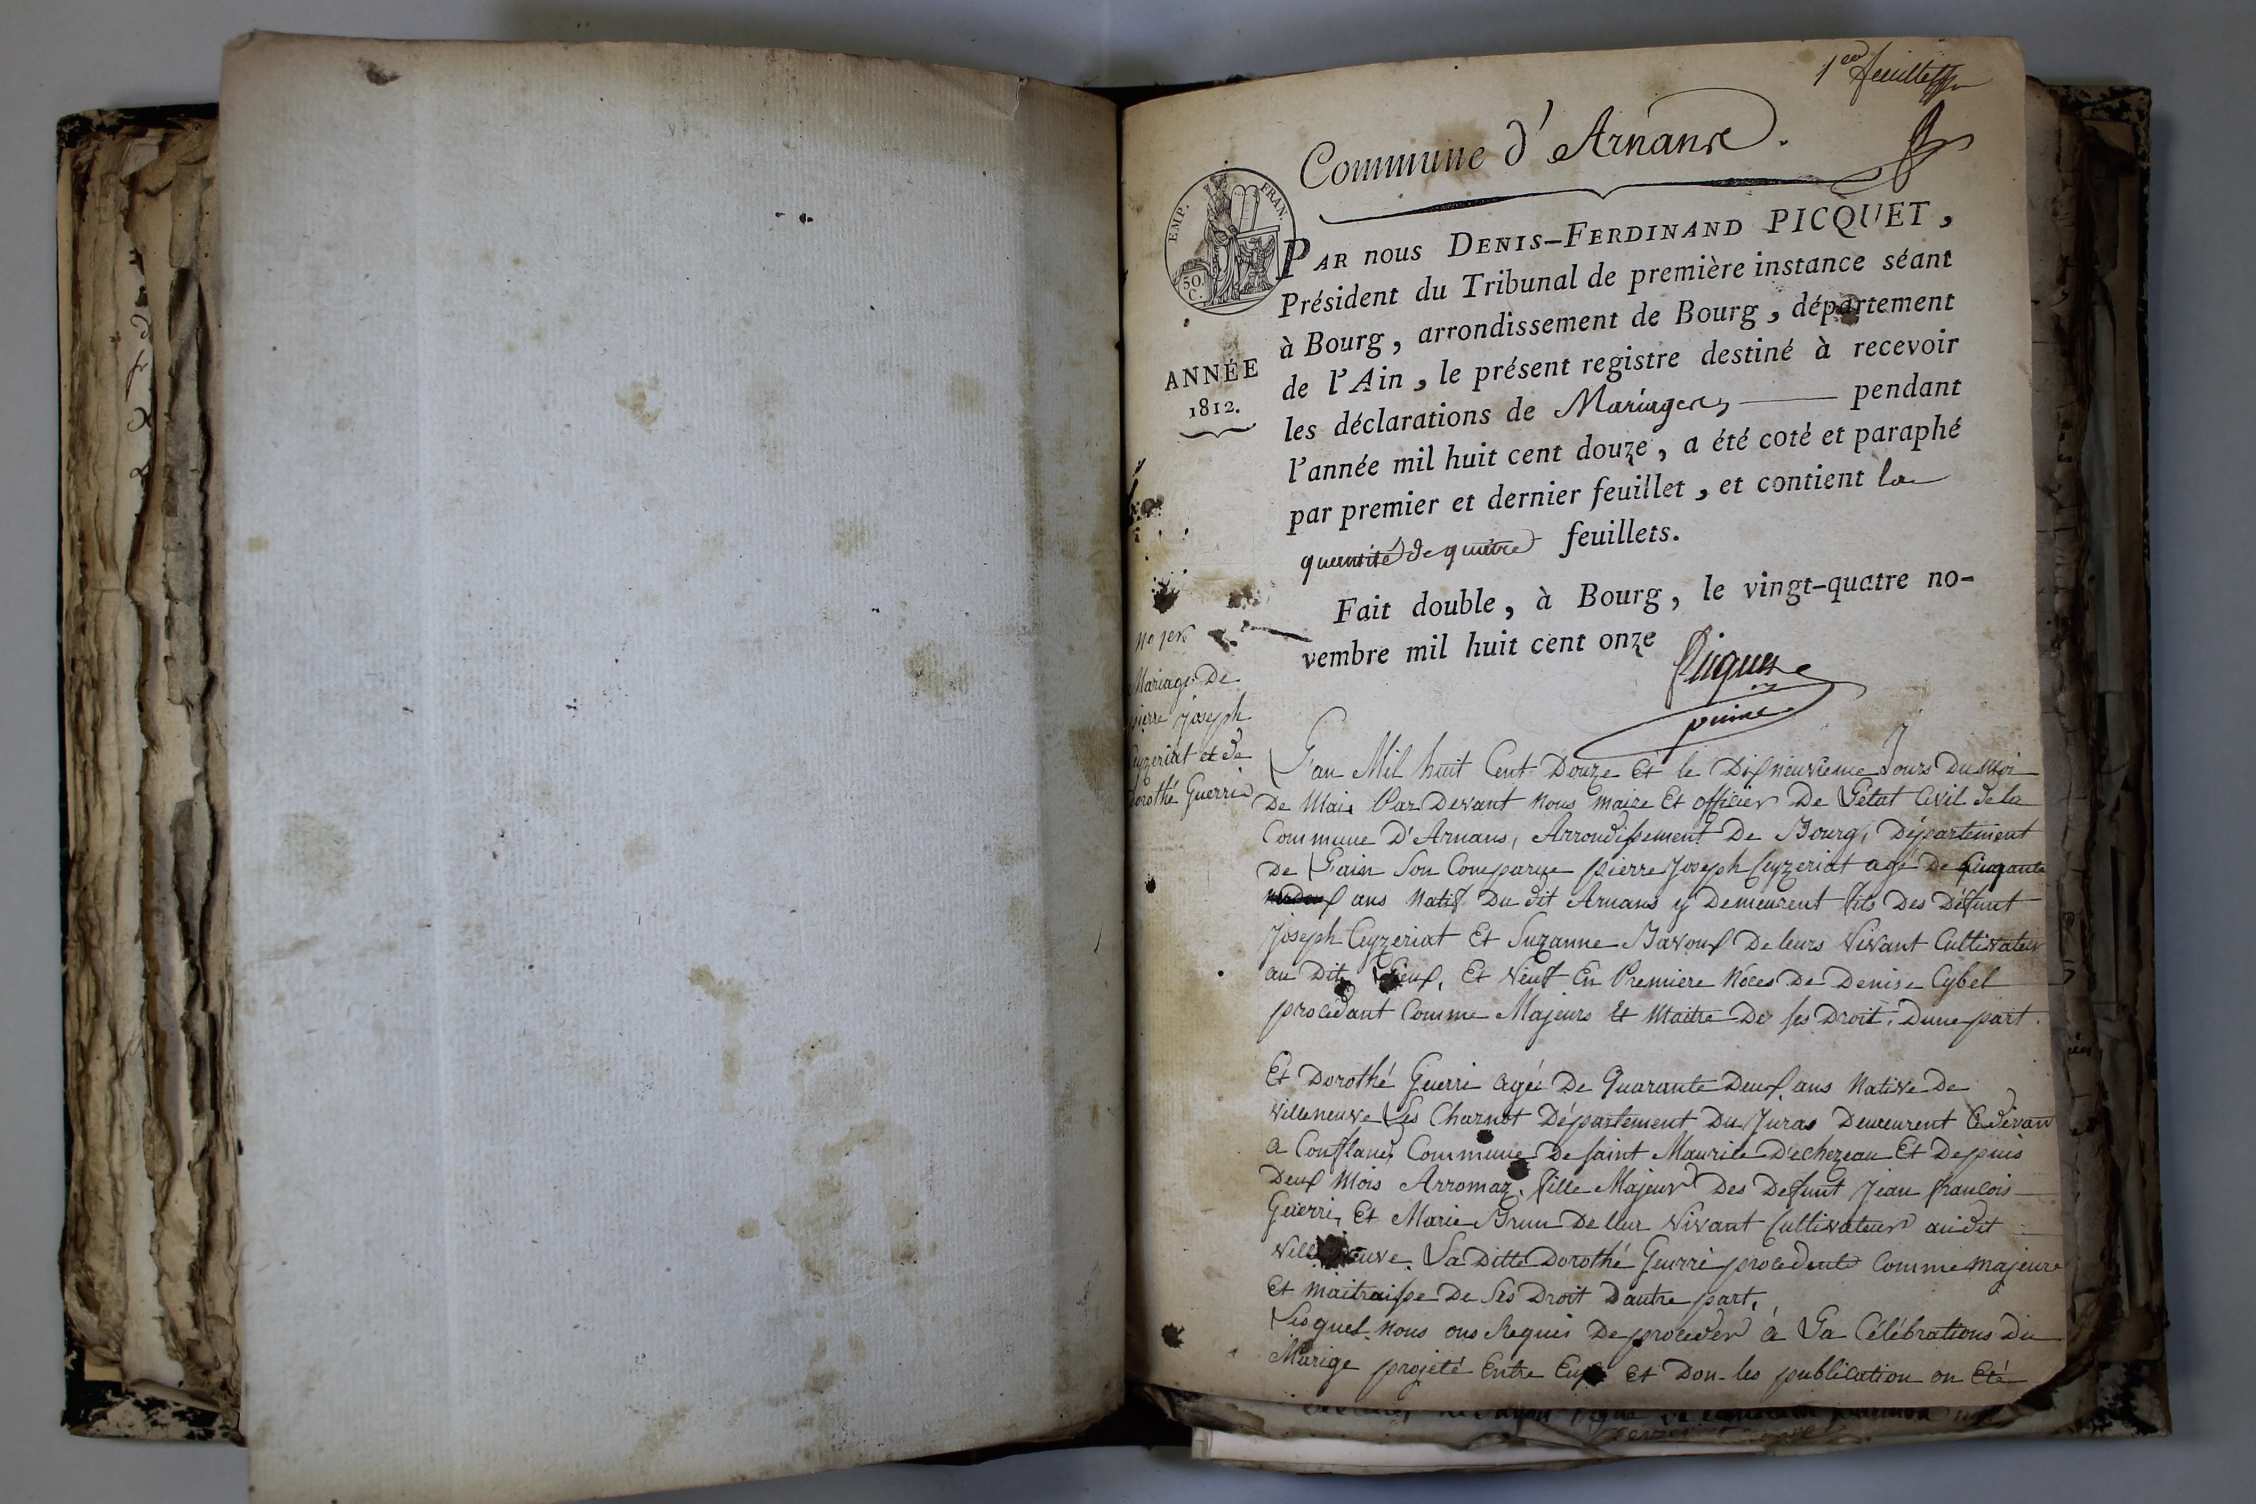 1er feuillet
Commune d'Arnans.
EMP. FRAN.
50. C.
PAR nous DENIS-FERDINAND PICQUET,
Président du Tribunal de première instance séant
à Bourg, arrondissement de Bourg, département
de l'Ain, le présent registre destiné à recevoir
les déclarations de Mariages pendant
l'année mil huit cent douze, a été coté et paraphé
par premier et dernier feuillet, et contient la
quantité de quatre feuillets.
Fait double, à Bourg, le vingt-quatre no-
vembre mil huit cent onze
Picquet
ANNÉE
1812.
no 1er
Mariage De
pierre joseph
Ceyzeriat et de
Dorothé Guerri
L'an Mil huit Cent Douze et le Dixneuvieme Jours Du Moi
De Mai. Par Devant Nous Maire Et officier De Letat Civil de la
Commune D'Arnans, Arrondissement De Bourg, Département
De Lain Son Comparue pierre Joseph Ceyzeriat agé De
ans Natif Du dit Arnans y Demeurent fils Des Défunt
Joseph Ceyzeriat Et Suzanne Bavoux De leurs Vivant Cultivateur
au Dit Lieux, Et Veuf En Premiere Noces De Denise Cybel
procedant Comme Majeurs Et Maitre De ses Droit, Dune part.
Et Dorothé Guerri agée De Quarante Deux ans Native De
Villeneuve Les Charnot Département Du Juras Demeurent Cidevan
a Conflans Commune De saint Maurice D'echezeau Et Depuis
Deux Mois Arromaz, fille Majeur Des Defunt Jean francois
Guerri, Et Marie Brun De leur Vivant Cultivateur audit
Villeneuve. La Ditte Dorothé Guerri procedente Comme Majeure
Et Maitraisse De Ses Droit Dautre part.
Lesquel Nous ons Requis De proceder à La Célébrations Du
Marige projeté Entre Eux Et Don les publication on Eté